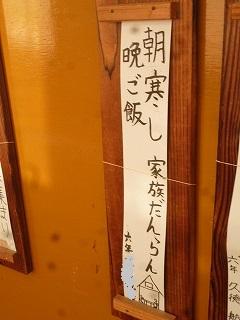 朝寒し
晩ご飯
家族だんらん
六年
六年 久徳
集まり